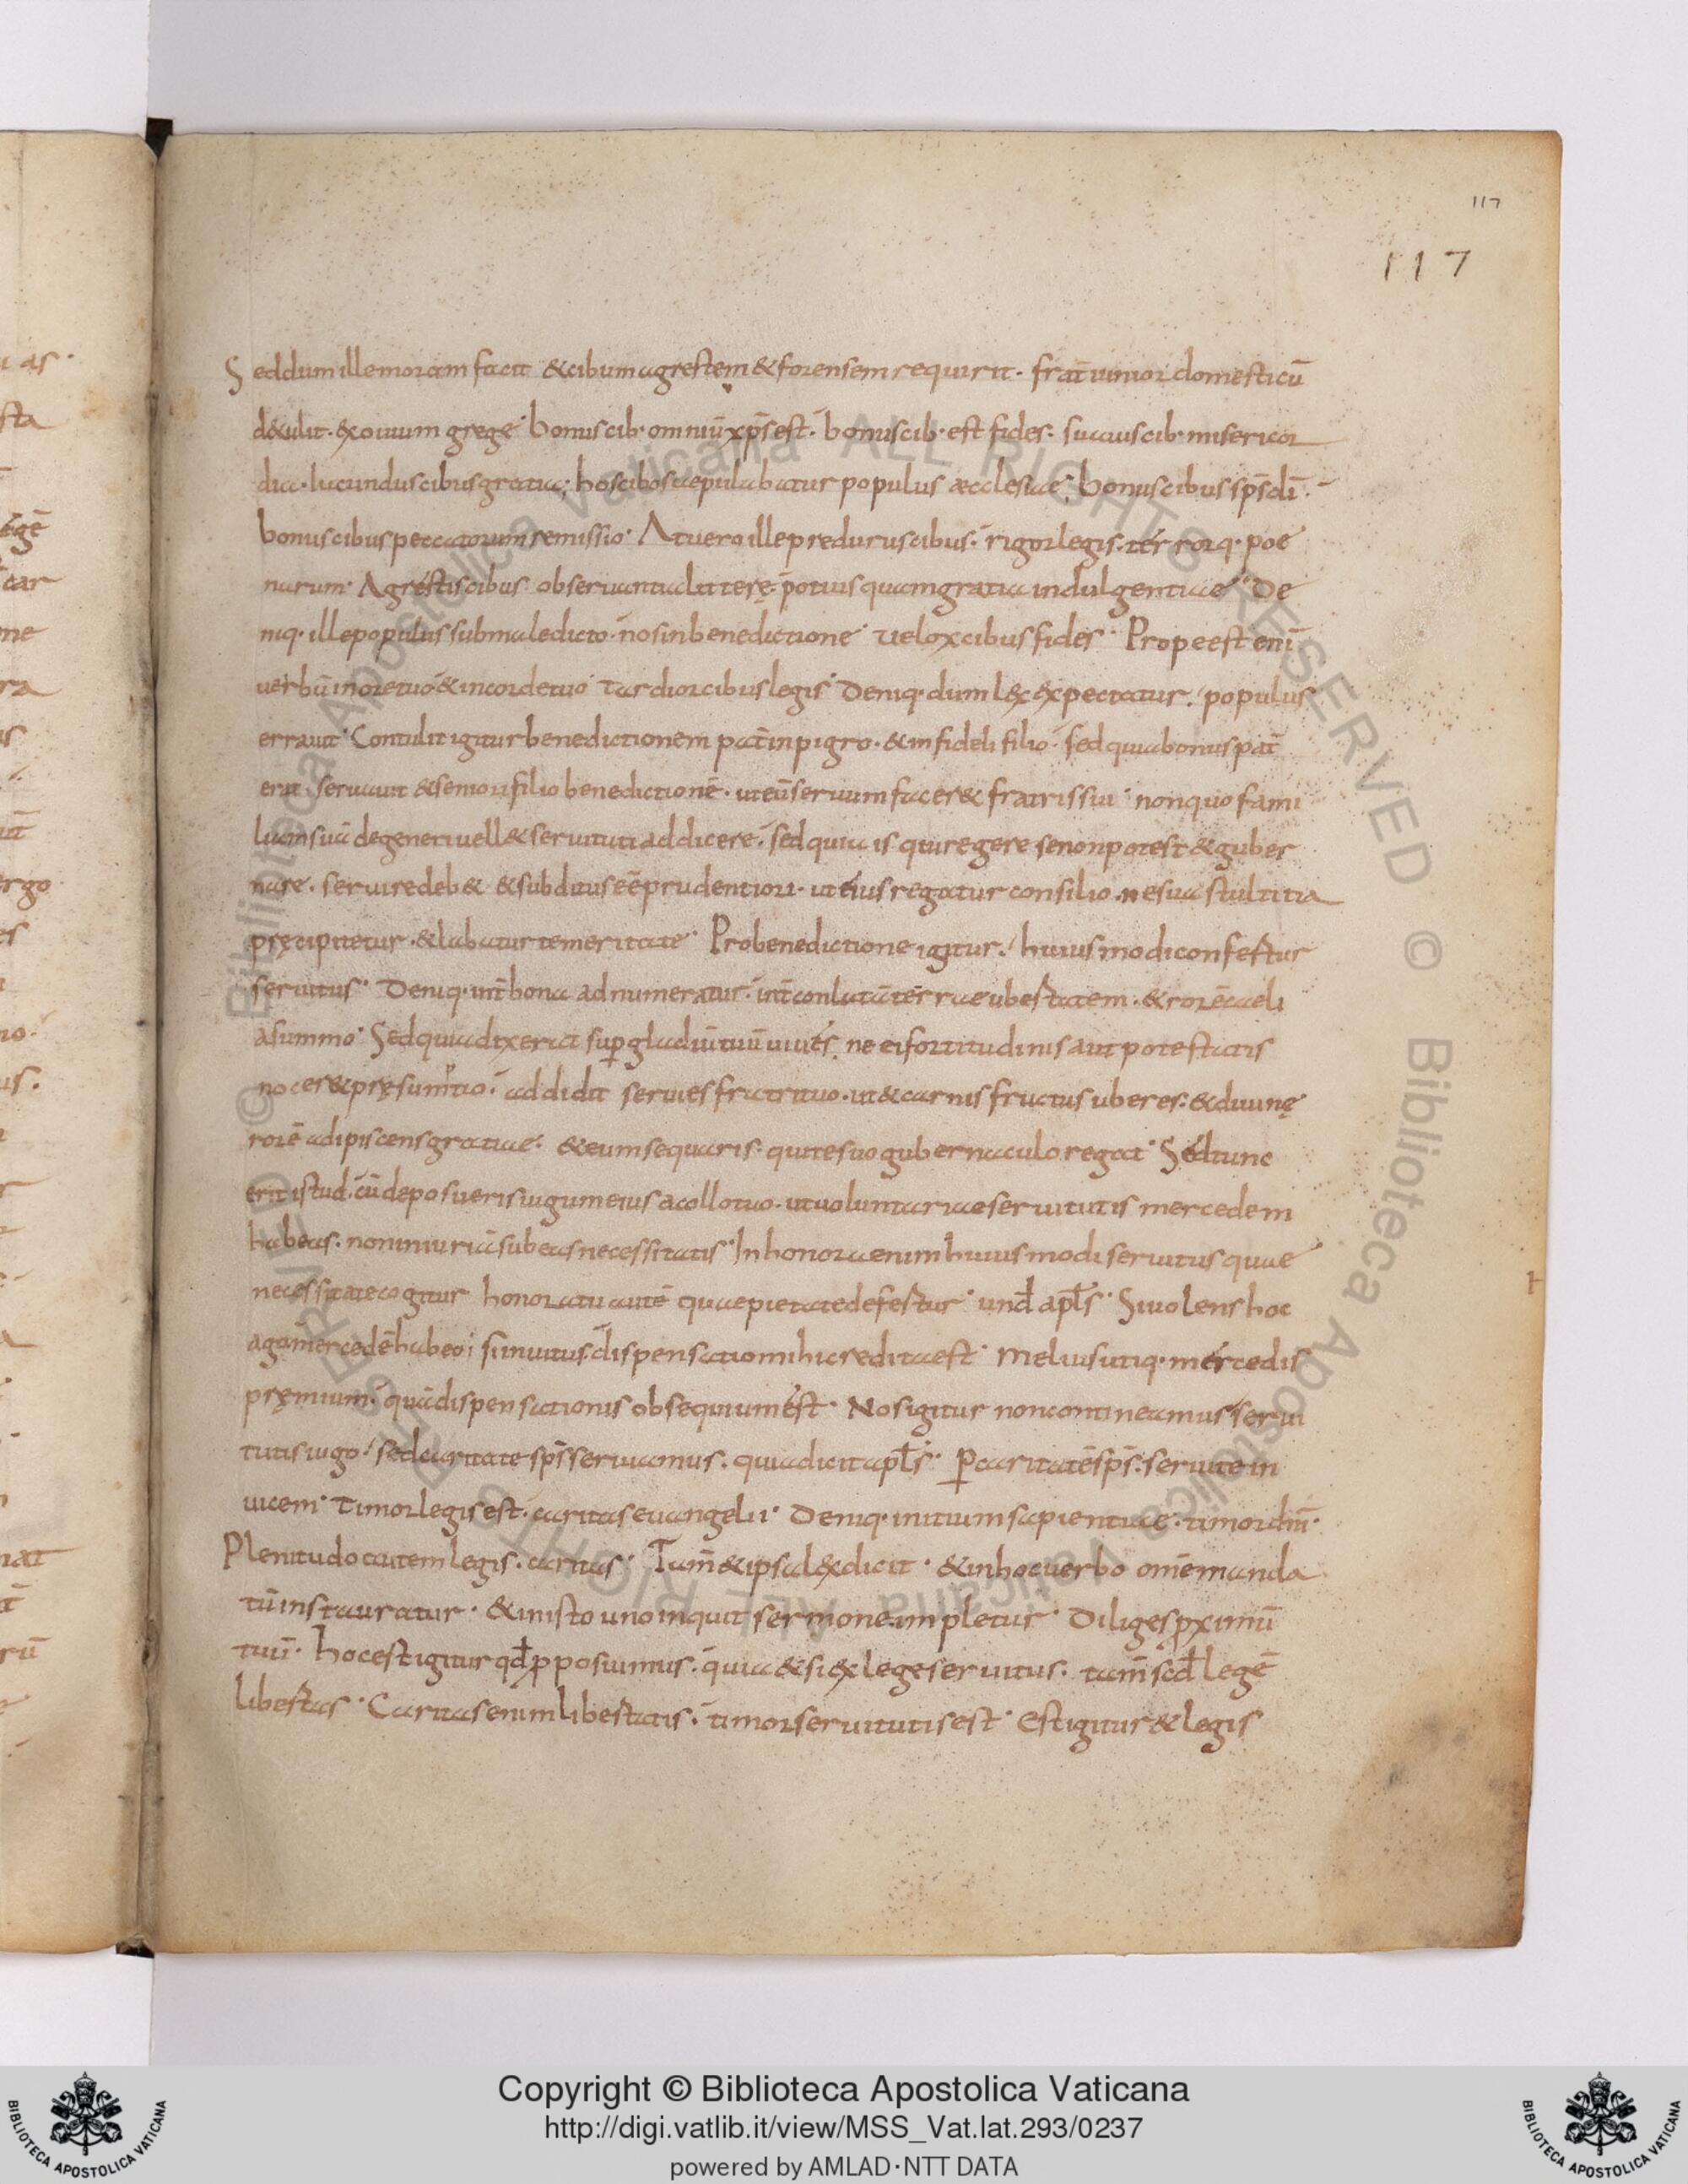 117
117
Sed dum ille moram facit & cibum agrestem & forensem requirit· frat̄ iunior domesticū
d&ulit· ex ouium grege· bonus cib· omniū xp̄s est· bonus cib· est fides· suauis cib· misericor
dia· iucundus cibus gratia; hos cibos aepulabatur populus aecclesiae; bonus cibus sp̄s dī·
bonus cibus peccatorum remissio· At uero ille predurus cibus· rigor legis· terrorq· poe
narum· Agrestis cibus obseruantia litterę potius quam gratia indulgentiae· De
niq· ille populus sub maledicto· nos in benedictione· uelox cibus fides· Prope est enī
uerbū in ore tuo & in corde tuo· tardior cibus legis· Deniq· dum lex expectatur· populus
errauit· Contulit igitur benedictionem pat̄ in pigro· & infideli filio· sed quia bonus pat̄
erat· seruauit & seniori filio benedictionē· ut eū seruum facer& fratris sui· non quo fami
liam suā degeneri uell& seruituti addicere· sed quia is qui regere se non potest & guber
nare· seruire deb& & subditus eē prudentiori· ut eius regatur consilio· ne sua stultitia
pręcipitetur· & labatur temeritate· Pro benedictione igitur· huiusmodi confertur
seruitus· Deniq· int̄ bona adnumeratur· int̄ conlatā terrae ubertatem· & rorē caeli
a summo· Sed quia dixerat sup gladiū tuū uiues· ne ei fortitudinis aut potestatis
nocer& pręsumptio· addidit seruies fratri tuo· ut & carnis fructus uberes· & diuinę
rorē adipiscens gratiae· & eum sequaris· qui te suo gubernaculo regat· Sed tunc
erit istud· cū deposueris iugum eius a collo tuo· ut uoluntariae seruitutis mercedem
habeas· non iniuriā subeas necessitatis· Inhonora enim huiusmodi seruitus quae
necessitate cogitur honorata autē quae pietate defertur· und̄ apl̄s· Si uolens hoc
ago mercedē habeo; si inuitus· dispensatio mihi credita est· melius utiq· mercedis
pręmium· quā dispensationis obsequium est· Nos igitur non contineamus serui
tutis iugo· sed caritate sp̄s seruiamus· quia dicit apl̄s· P caritatē sp̄s· seruite in
uicem· Timor legis est· caritas euangelii· Deniq· initium sapientiae· timor dnī·
Plenitudo autem legis· caritas· Tam̄ & ipsa lex dicit· & in hoc uerbo om̄e manda
tū instauratur· & in isto uno inquit sermone impletur· Diliges pximū
tuū· hoc est igitur qd̄ pposuimus· quia & si ex lege seruitus· tam̄ scd̄ legē
libertas· Caritas enim libertatis· timor seruitutis est· Est igitur & legis
Copyright © Biblioteca Apostolica Vaticana
http://digi.vatlib.it/view/MSS_Vat.lat.293/0237
powered by AMLAD·NTT DATA
BIBLIOTECA APOSTOLICA VATICANA
BIBLIOTECA APOSTOLICA VATICANA